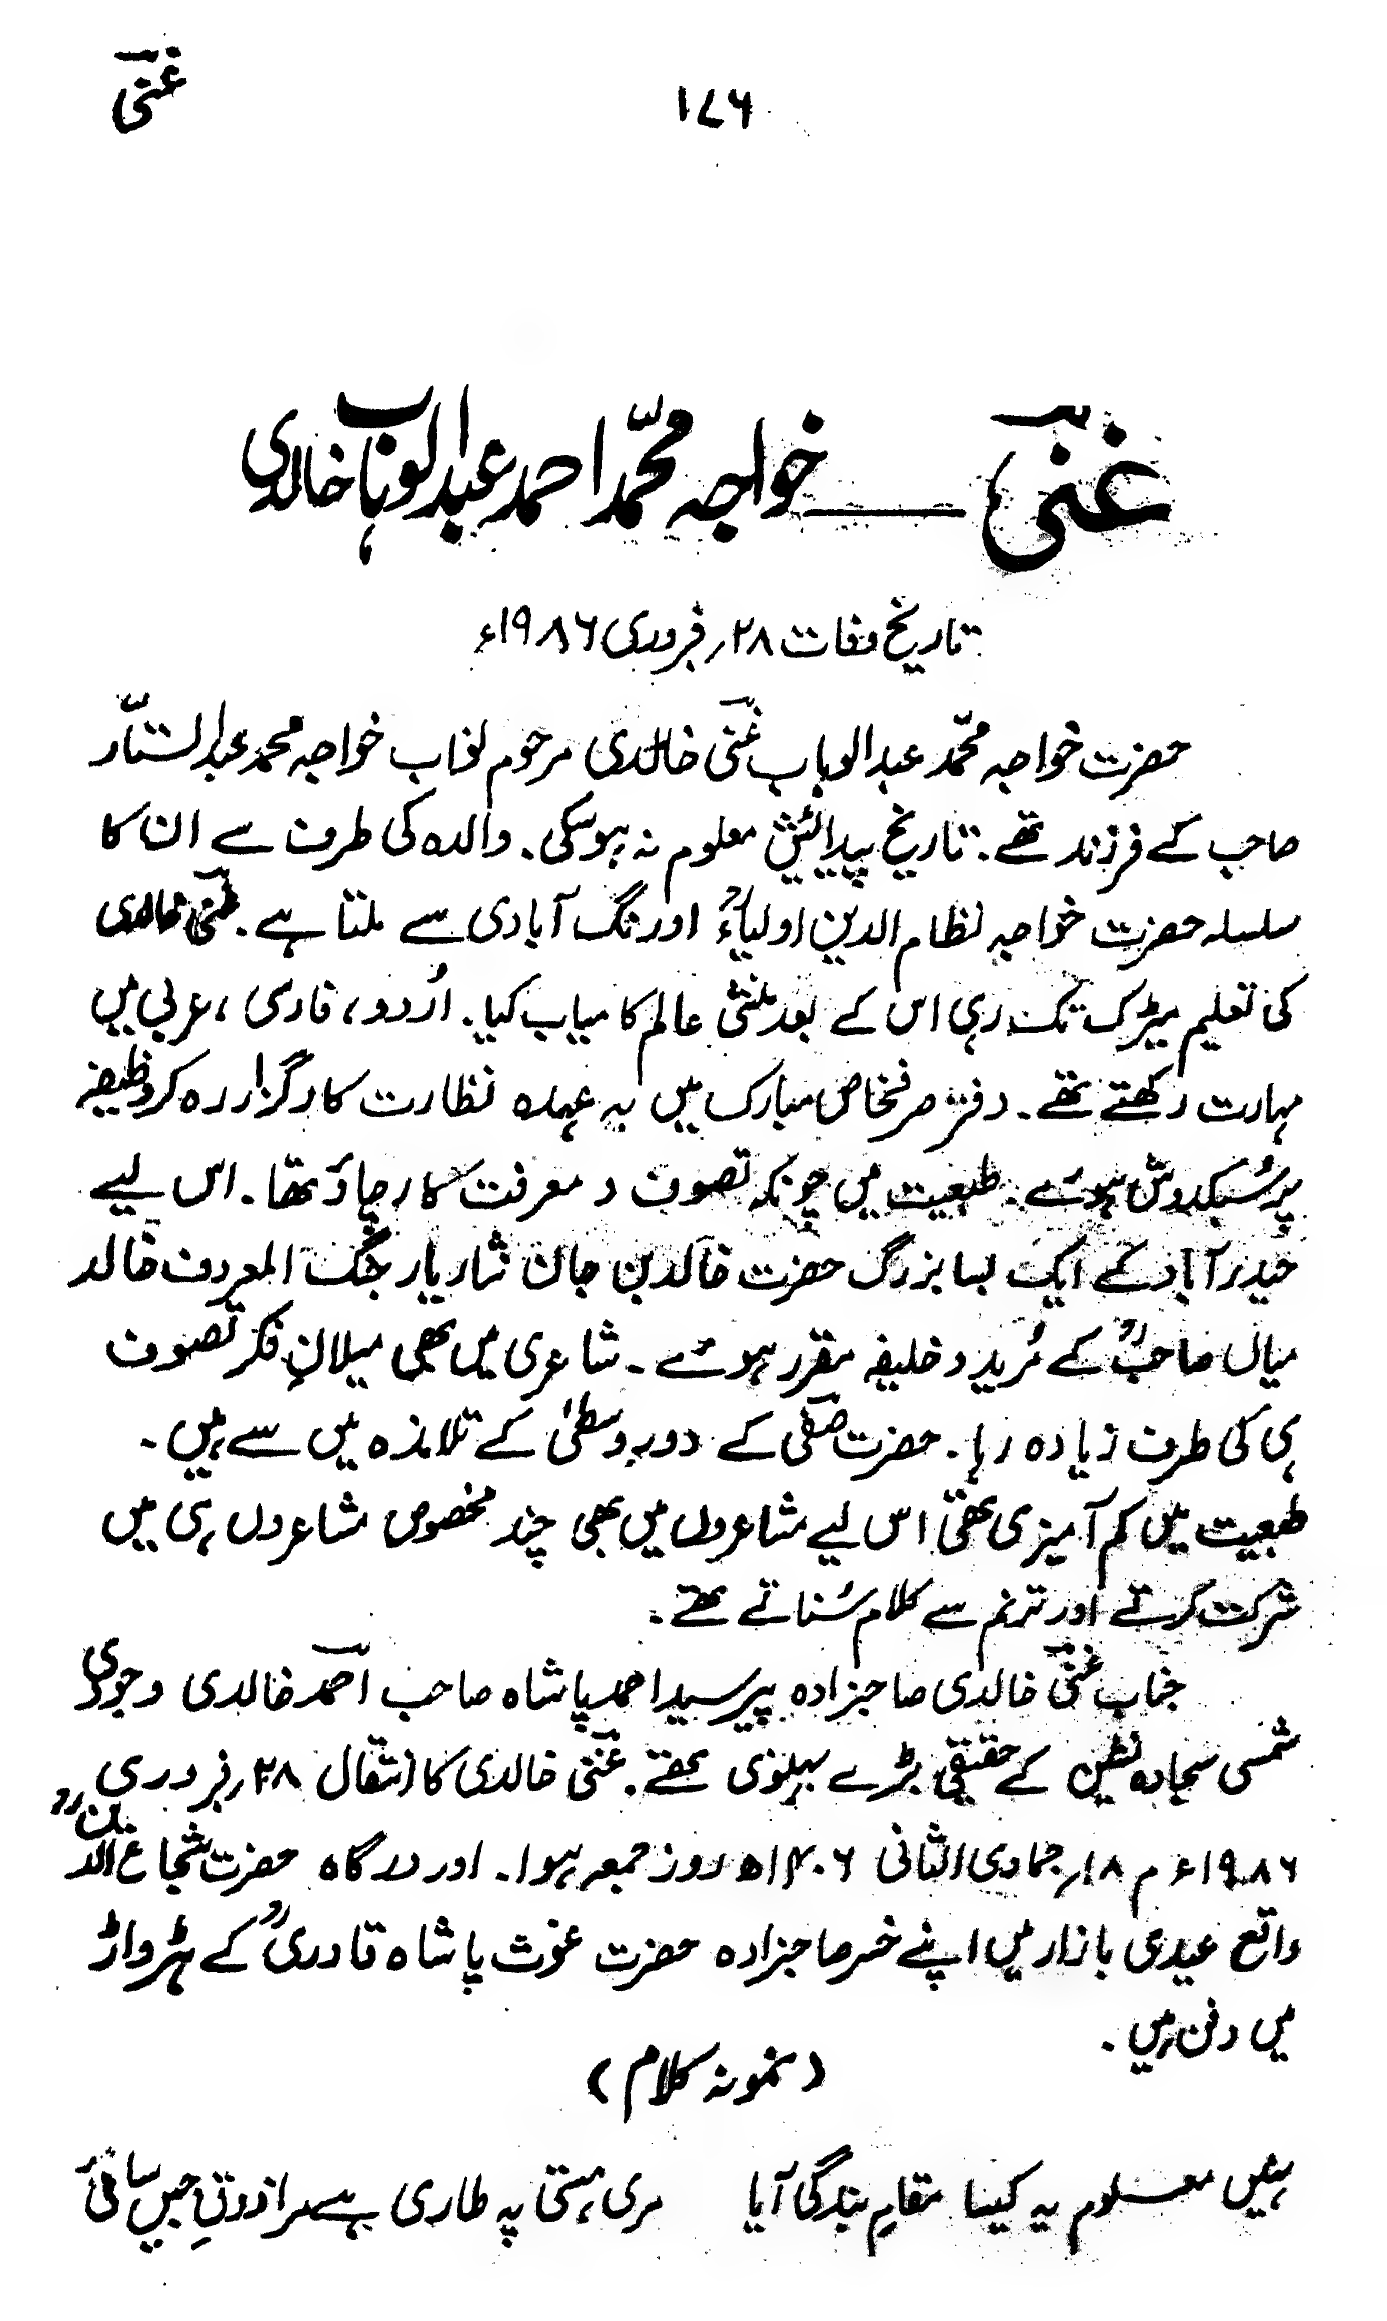 غنیؔ
۱۷۶
غنیؔ ـــــ خواجہ محمّد احمد عبدالوہاب خالدی
تاریخ وفات ۲۸؍فروری ۱۹۸۶ء
حضرت خواجہ محمّد عبدالوہاب غنیؔ خالدی مرحوم نواب خواجہ محمد عبدالستّار
صاحب کے فرزند تھے۔ تاریخ پیدائش معلوم نہ ہوسکی۔ والدہ کی طرف سے ان کا
سلسلہ حضرت خواجہ نظام الدین اولیاءؒ اورنگ آبادی سے ملتا ہے۔ غنیؔ خالدی
کی تعلیم میٹرک تک رہی اس کے بعد منشی عالم کامیاب کیا۔ اُردو، فارسی، عربی میں
مہارت رکھتے تھے۔ دفتر صرفخاص مبارک میں بہ عہدہ نظارت کارگزار رہ کر وظیفہ
پر سُبکدوش ہوئے۔ طبعیت میں چونکہ تصوف و معرفت کا رچاؤ تھا۔ اس لیے
حیدرآباد کے ایک بسا بزرگ حضرت خالد بن جان نثار یار جنگ المعروف خالد
میاں صاحبؒ کے مُرید و خلیفہ مقرر ہوئے ۔ شاعری میں بھی میلانِ فکر تصوف
ہی کی طرف زیادہ رہا۔ حضرت صفیؔ کے دورِ وسطیٰ کے تلامذہ میں سے ہیں ۔
طبعیت میں کم آمیزی تھی اس لیے مشاعروں میں بھی چند مخصوص مشاعروں ہی میں
شرکت کرتے اور ترنم سے کلام سُناتے تھے۔
جناب غنیؔ خالدی صاحبزادہ پیر سید احمد پاشاہ صاحب احمدؔ خالدی وجودی
شمسی سجادہ نشین کے حقیقی بڑے بہنوی تھے۔ غنیؔ خالدی کا انتقال ۲۸؍فروری
۱۹۸۶ء م ۱۸؍جمادی الثانی ۱۴۰۶ھ روز جمعہ ہوا۔ اور درگاہ حضرت شجاع الدینؒ
واقع عیدی بازار میں اپنے خسر صاجزادہ حضرت غوث پاشاہ قادریؒ کے ہڑواڑ
میں دفن ہیں ۔
(نمونہ کلام)
ہنیں معلوم یہ کیسا مقامِ بندگی آیا مری ہستی پہ طاری ہے مرا ذوقِ جبیں سائی